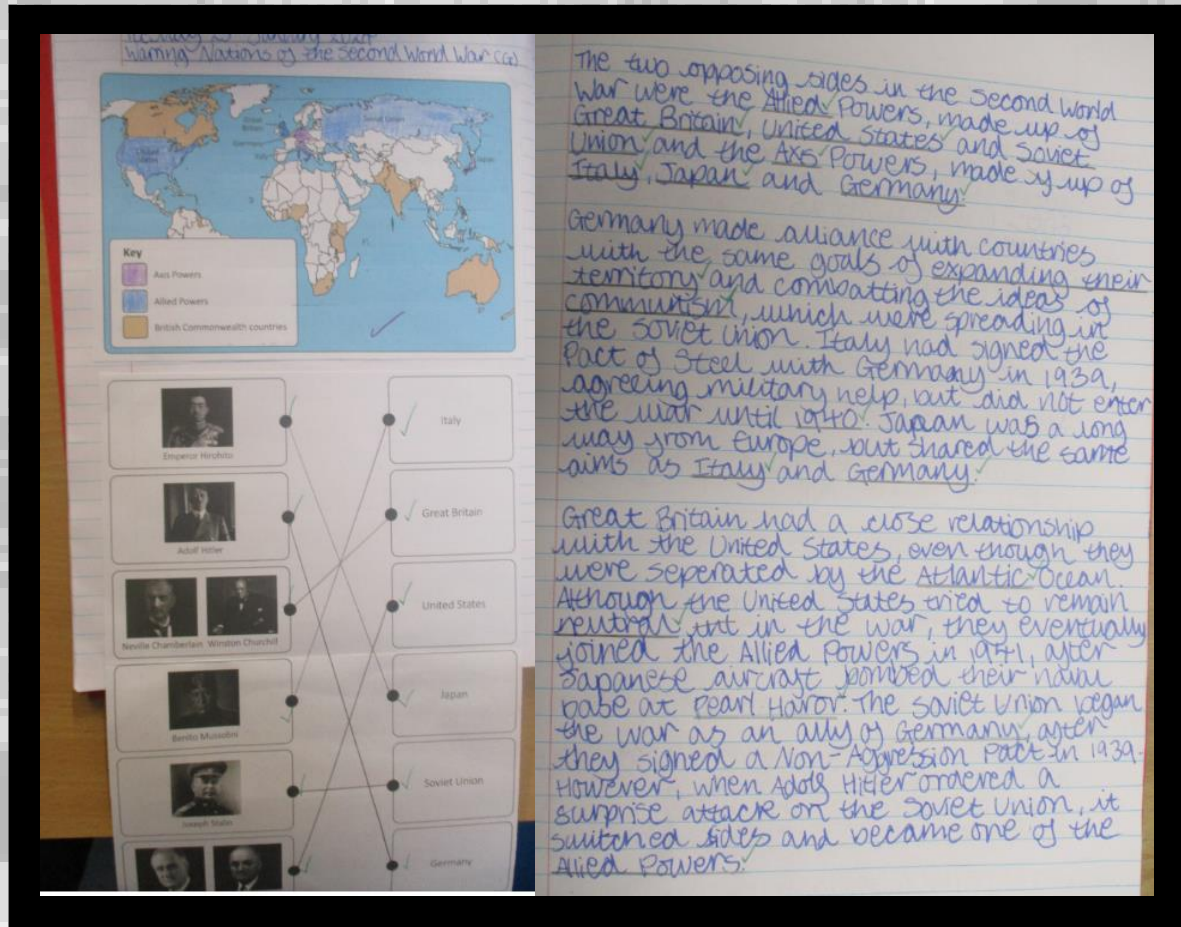 Warring Nations of the Second World War (G)
Great
Britain
Germany
Italy
Soviet Union
United
States
Japan
Key
Axis Powers
Allied Powers
British Commonwealth countries
Emperor Hirohito
Italy
Adolf Hitler
Great Britain
Neville Chamberlain Winston Churchill
United States
Benito Mussolini
Japan
Joseph Stalin
Soviet Union
Germany
The two opposing sides in the Second World
War were the Allied Powers, made up of
Great Britain, United States and Soviet
Union and the Axis Powers, made y up of
Italy, Japan and Germany.
Germany made alliance with countries
with the same goals of expanding their
territory and combatting the ideas of
communism, which were spreading in
the Soviet Union. Italy had signed the
Pact of Steel with Germany in 1939,
agreeing military help, but did not enter
the war until 1940. Japan was a long
way from Europe, but shared the same
aims as Italy and Germany.
Great Britain had a close relationship
with the United States, even though they
were seperated by the Atlantic Ocean.
Although the United States tried to remain
neutral in the war, they eventually
joined the Allied Powers in 1941, after
Japanese aircraft bombed their naval
base at Pearl Haror. The Soviet Union began
the war as an ally of Germany, after
they signed a Non-Aggression Pact in 1939.
However, when Adolf Hitler ordered a
surprise attack on the Soviet Union, it
switched sides and became one of the
Allied Powers.